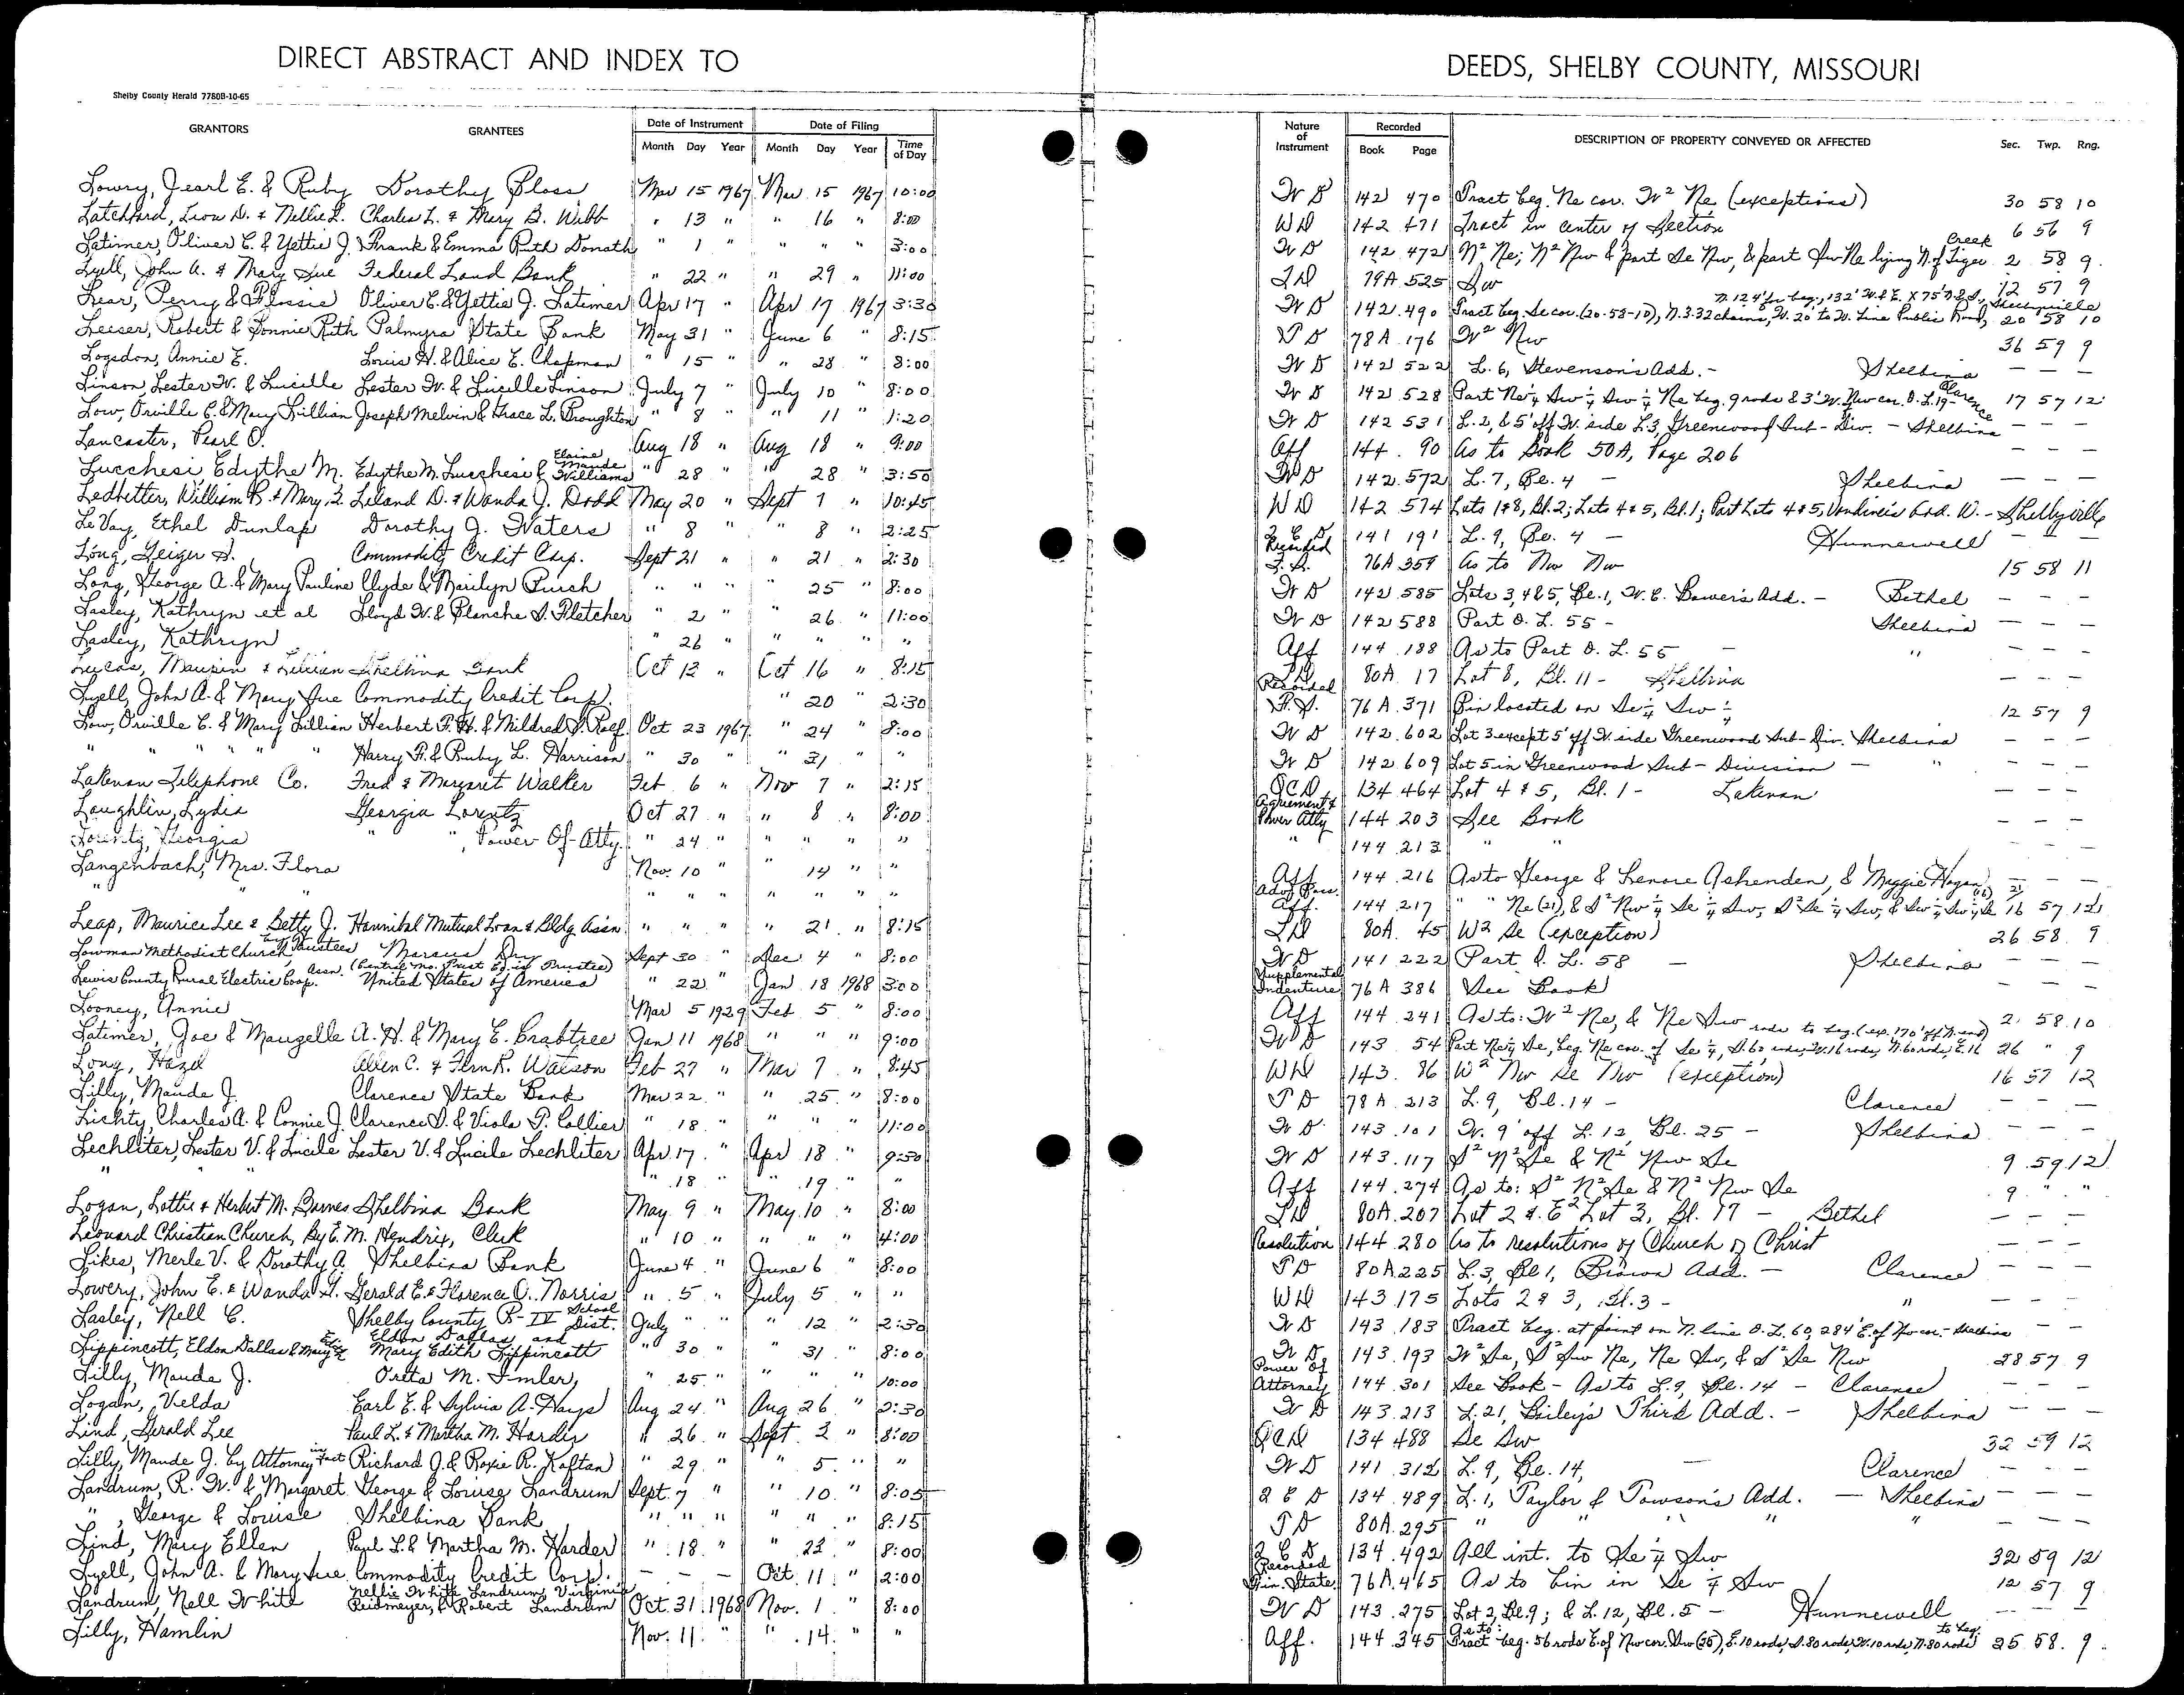 DIRECT ABSTRACT AND INDEX TO
DEEDS, SHELBY COUNTY, MISSOURI
Shelby County Herald 7780B-10-65
GRANTORS GRANTEES Date of Instrument Month Day Year Date of Filing Month Day Year Time of Day
Nature of Instrument Recorded Book Page DESCRIPTION OF PROPERTY CONVEYED OR AFFECTED Sec. Twp. Rng.
Lowry, Jearl E. & Ruby Dorothy Bloss Mar 15 1967 Mar 15 1967 10:00 W D 142 470 Tract beg. Ne cor. W² Ne (exceptions) 30 58 10
Latchford, Leon D. & Nellie L. Charles L. & Mary B. Webb " 13 " " 16 " 8:00 WD 142 471 Tract in center of Section 6 56 9
Latimer, Oliver C. & Yettie J. Frank & Emma Ruth Donath " 1 " " " " 3:00 W D 142 472 N² Ne; N² Nw & part Se Nw, & part Sw Ne lying N. of Tiger Creek 2 58 9
Lyell, John A. & Mary Sue Federal Land Bank " 22 " " 29 " 11:00 T D 79A 525 Sw 12 57 9
Lear, Perry & Flossie Oliver C. & Yettie J. Latimer Apr 17 " Apr 17 1967 3:30 W D 142 490 Tract beg. Se cor. (20-58-10), N. 3.32 chains, W. 20' to W. Line Public Road, N. 124' for beg., 132' W. & E. X 75' N. & S., Shelbyville 20 58 10
Leiser, Robert & Bonnie Ruth Palmyra State Bank May 31 " June 6 " 8:15 T D 78A 176 W² Nw 36 59 9
Logsdon, Annie E. Louis H. & Alice E. Chapman " 15 " " 28 " 8:00 W D 142 522 L. 6, Stevenson's Add. - Shelbina — — —
Linson, Lester W. & Lucille Lester W. & Lucille Linson July 7 " July 10 " 8:00 W D 142 528 Part Ne¼ Sw ¼ Sw ¼ Ne beg. 9 rods & 3' W. Nw cor. O. L. 19 - Clarence 17 57 12
Low, Orville C. & Mary Lillian Joseph Melvin & Grace L. Broughton " 8 " " 11 " 1:20 W D 142 531 L. 2, & 5' off W. side L. 3, Greenwood Sub-Div. - Shelbina — — —
Lancaster, Pearl O. Aug 18 " Aug 18 " 9:00 Aff 144 90 As to Book 50A, Page 206 — — —
Lucchesi, Edythe M. Edythe M. Lucchesi & Elaine Maude Williams " 28 " " 28 " 3:50 W D 142 572 L. 7, Bl. 4 - Shelbina — — —
Ledbetter, William B. & Mary I. Leland D. & Wanda J. Dodd May 20 " Sept 7 " 10:45 WD 142 574 Lots 1&8, Bl. 2; Lots 4 & 5, Bl. 1; Part Lots 4 & 5, Add. W. - Shelbyville
LeVay, Ethel Dunlap Dorothy J. Waters " 8 " " 8 " 2:25 Q C D 141 191 L. 9, Bl. 4 - Hunnewell — — —
Long, Geiger S. Commodity Credit Corp. Sept 21 " " 21 " 2:30 Recorded F. S. 76A 359 As to Nw Nw 15 58 11
Long, George A. & Mary Pauline Clyde & Marilyn Burch " " " " 25 " 8:00 W D 142 585 Lots 3, 4 & 5, Bl. 1, W. C. Bower's Add. - Bethel — — —
Lasley, Kathryn et al Lloyd W. & Blanche S. Fletcher " 2 " " 26 " 11:00 W D 142 588 Part O. L. 55 - Shelbina — — —
Lasley, Kathryn " 26 " " " " " Aff 144 188 As to Part O. L. 55 - " — — —
Lucas, Maupin & Lillian Shelbina Bank Oct 12 " Oct 16 " 8:15 T D 80A 17 Lot 8, Bl. 11 - Shelbina — — —
Lyell, John A. & Mary Sue Commodity Credit Corp. " 20 2:30 Recorded F. S. 76A 371 Bin located on Se ¼ Sw ¼ 12 57 9
Low, Orville C. & Mary Lillian Herbert F. H. & Mildred S. Rolf Oct 23 1967 " 24 " 8:00 W D 142 602 Lot 3 except 5' off W. side Greenwood Sub-Div. Shelbina — — —
" " " " " Harry F. & Ruby L. Harrison " 30 " " 31 " " W D 142 609 Lot 5 in Greenwood Sub-Division - " — — —
Lakenan Telephone Co. Fred & Margaret Walker Feb 6 " Nov 7 " 2:15 QCD 134 464 Lot 4 & 5, Bl. 1 - Lakenan — — —
Laughlin, Lydia Georgia Lorentz Oct 27 " " 8 " 8:00 Agreement & Power Atty 144 203 See Book — — —
Lorentz, Georgia " ", Power Of Atty. " 24 " " " " " " 144 213 " " — — —
Langenbach, Mrs. Flora Nov. 10 " " 14 " " Aff 144 216 As to George & Lenore Ashenden, & Maggie Hogan — — —
" " " " " " " " " " Adv. Poss. Aff. 144 217 " " Ne (21), & S² Nw ¼ Se ¼ Sw, S² Se ¼ Sw, & Sw ¼ Sw ¼ Se 16 57 12
Leap, Maurice Lee & Betty J. Hannibal Mutual Loan & Bldg Ass'n " " " " 21 " 8:15 T D 80A 45 W² Se (exception) 26 58 9
Lowman Methodist Church by Trustees Marcus Dry Sept 30 " Dec 4 " 8:00 W D 141 222 Part O. L. 58 - Shelbina — — —
Lewis County Rural Electric Coop. Assn. (Central Mo. Trust Co. is Trustee) United States of America " 22 " Jan 18 1968 3:00 Supplemental Indenture 76A 386 See Book — — —
Looney, Annie Mar 5 1929 Feb 5 " 8:00 Aff 144 241 As to: W² Ne, & Ne Sw 2 58 10
Latimer, Joe & Mauzelle A. H. & Mary E. Crabtree Jan 11 1968 " " " 9:00 W D 143 54 Part Ne¼ Se, beg. Ne cor. of Se ¼, S. 60 rods, W. 16 rods, N. 60 rods, E. 16 rods to beg. (ex. 170' off N. end) 26 " 9
Long, Hazel Allen C. & Fern R. Watson Feb 27 " Mar 7 " 8:45 WD 143 86 W² Nw Se Nw (exception) 16 57 12
Lilly, Maude J. Clarence State Bank Mar 22 " " 25 " 8:00 T D 78A 213 L. 9, Bl. 14 - Clarence — — —
Lichty, Charles A. & Connie J. Clarence D. & Viola P. Collier " 18 " " " " 11:00 W D 143 101 W. 9' off L. 12, Bl. 25 - Shelbina — — —
Lechliter, Lester V. & Lucile Lester V. & Lucile Lechliter Apr 17 " Apr 18 " 9:50 W D 143 117 S² N² Se & N² Nw Se 9 59 12
" " " " 18 " " 19 " " Aff 144 274 As to: S² N² Se & N² Nw Se 9 " "
Logan, Lottie & Herbert M. Barnes Shelbina Bank May 9 " May 10 " 8:00 T D 80A 207 Lot 2 & E² Lot 3, Bl. 17 - Bethel — — —
Leonard Christian Church, By E. M. Hendrix, Clerk " 10 " " " " 4:00 Resolution 144 280 As to resolutions of Church of Christ — — —
Likes, Merle V. & Dorothy A. Shelbina Bank June 4 " June 6 " 8:00 T D 80A 225 L. 3, Bl 1, Brown Add. - Clarence — — —
Lowery, John E. & Wanda G. Gerald E. & Florence O. Norris " 5 " July 5 " " WD 143 175 Lots 2 & 3, Bl. 3 - " — — —
Lasley, Nell C. Shelby County R-IV School Dist. July " " " 12 " 2:30 W D 143 183 Tract beg. at point on N. line O. L. 60, 284' E. of Nw cor. - Shelbina — —
Lippincott, Eldon Dallas & Mary Edith Eldon Dallas and Mary Edith Lippincott " 30 " " 31 " 8:00 W D 143 193 W² Se, S² Sw Ne, Ne Sw, & S² Se Nw 28 57 9
Lilly, Maude J. Oretta M. Imler " 25 " " " " 10:00 Power of Attorney 144 301 See Book - As to L. 9, Bl. 14 - Clarence — — —
Logan, Velda Earl E. & Sylvia A. Hays Aug 24 " Aug 26 " 2:30 W D 143 213 L. 21, Bailey's Third Add. - Shelbina — — —
Lind, Gerald Lee Paul L. & Martha M. Harder " 26 " Sept. 2 " 8:00 QCD 134 488 Se Sw 32 59 12
Lilly, Maude J. by Attorney in Fact Richard J. & Roxie R. Kaftan " 29 " " 5 " " W D 141 312 L. 9, Bl. 14, - Clarence — — —
Landrum, R. W. & Margaret George & Louise Landrum Sept. 7 " " 10 " 8:05 Q C D 134 489 L. 1, Taylor & Towson's Add. - Shelbina — — —
" , George & Louise Shelbina Bank " " " " " " 8:15 T D 80A 295 " " " " " — — —
Lind, Mary Ellen Paul L. & Martha M. Harder " 18 " " 23 " 8:00 Q C D 134 492 All int. to Se ¼ Sw 32 59 12
Lyell, John A. & Mary Sue Commodity Credit Corp. - - - Oct. 11 " 2:00 Recorded Fin. State. 76A 465 As to bin in Se ¼ Sw 12 57 9
Landrum, Nell White Nellie White Landrum, Virginia Reidmeyer, & Robert Landrum Oct. 31 1968 Nov. 1 " 8:00 W D 143 275 Lot 2, Bl. 9; & L. 12, Bl. 5 - Hunnewell — — —
Lilly, Hamlin Nov. 11 " " 14 " " Aff. 144 345 As to: Tract beg. 56 rods E. of Nw cor. Sw (25), E. 10 rods, S. 80 rods, W. 10 rods, N. 80 rods to beg. 25 58 9